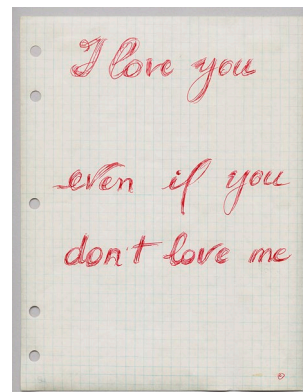 I love you
even if you
don't love me